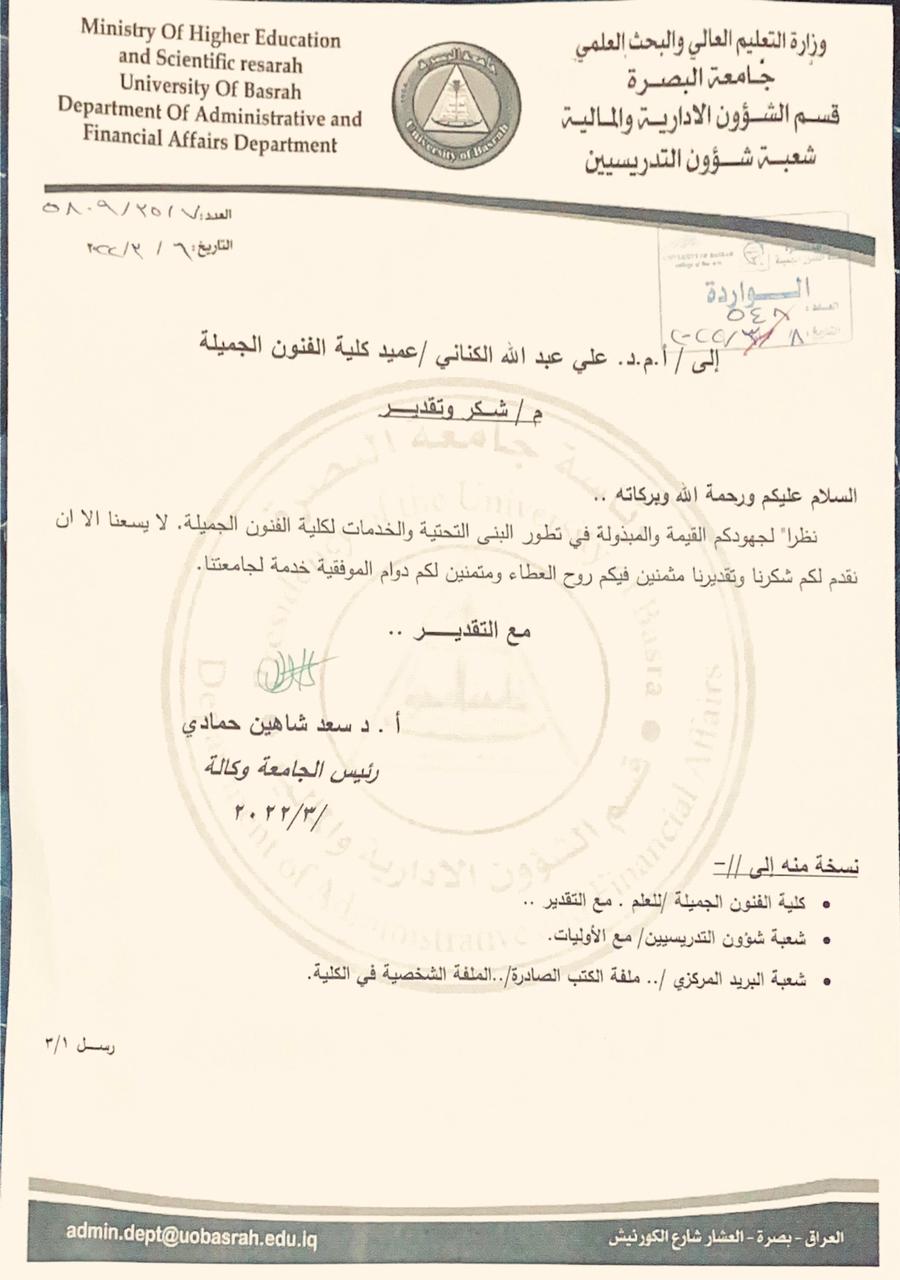 Ministry Of Higher Education
and Scientific resarah
University Of Basrah
Department Of Administrative and
Financial Affairs Department
جامعة البصرة
University of Basrah
وزارة التعليم العالي والبحث العلمي
جامعة البصرة
قسم الشؤون الادارية والمالية
شعبة شؤون التدريسيين
العدد: ٥٨٠٩/٣٥/٧
التاريخ: ٦ / ٣/ ٢٠٢٢
UNIVERSITY OF BASRAH
الواردة
العدد: ٥٤٨
التاريخ: ٨/
إلى / أ.م.د. علي عبد الله الكناني /عميد كلية الفنون الجميلة
م / شكر وتقدير
السلام عليكم ورحمة الله وبركاته ..
نظرا" لجهودكم القيمة والمبذولة في تطور البنى التحتية والخدمات لكلية الفنون الجميلة. لا يسعنا الا ان
نقدم لكم شكرنا وتقديرنا مثمنين فيكم روح العطاء ومتمنين لكم دوام الموفقية خدمة لجامعتنا.
مع التقدير ..
أ . د سعد شاهين حمادي
رئيس الجامعة وكالة
/٢٠٢٢/٣
نسخة منه إلى //-
• كلية الفنون الجميلة /للعلم . مع التقدير ..
• شعبة شؤون التدريسيين/ مع الأوليات.
• شعبة البريد المركزي /.. ملفة الكتب الصادرة/..الملفة الشخصية في الكلية.
رسل ٣/١
admin.dept@uobasrah.edu.iq
العراق - بصرة - العشار شارع الكورنيش